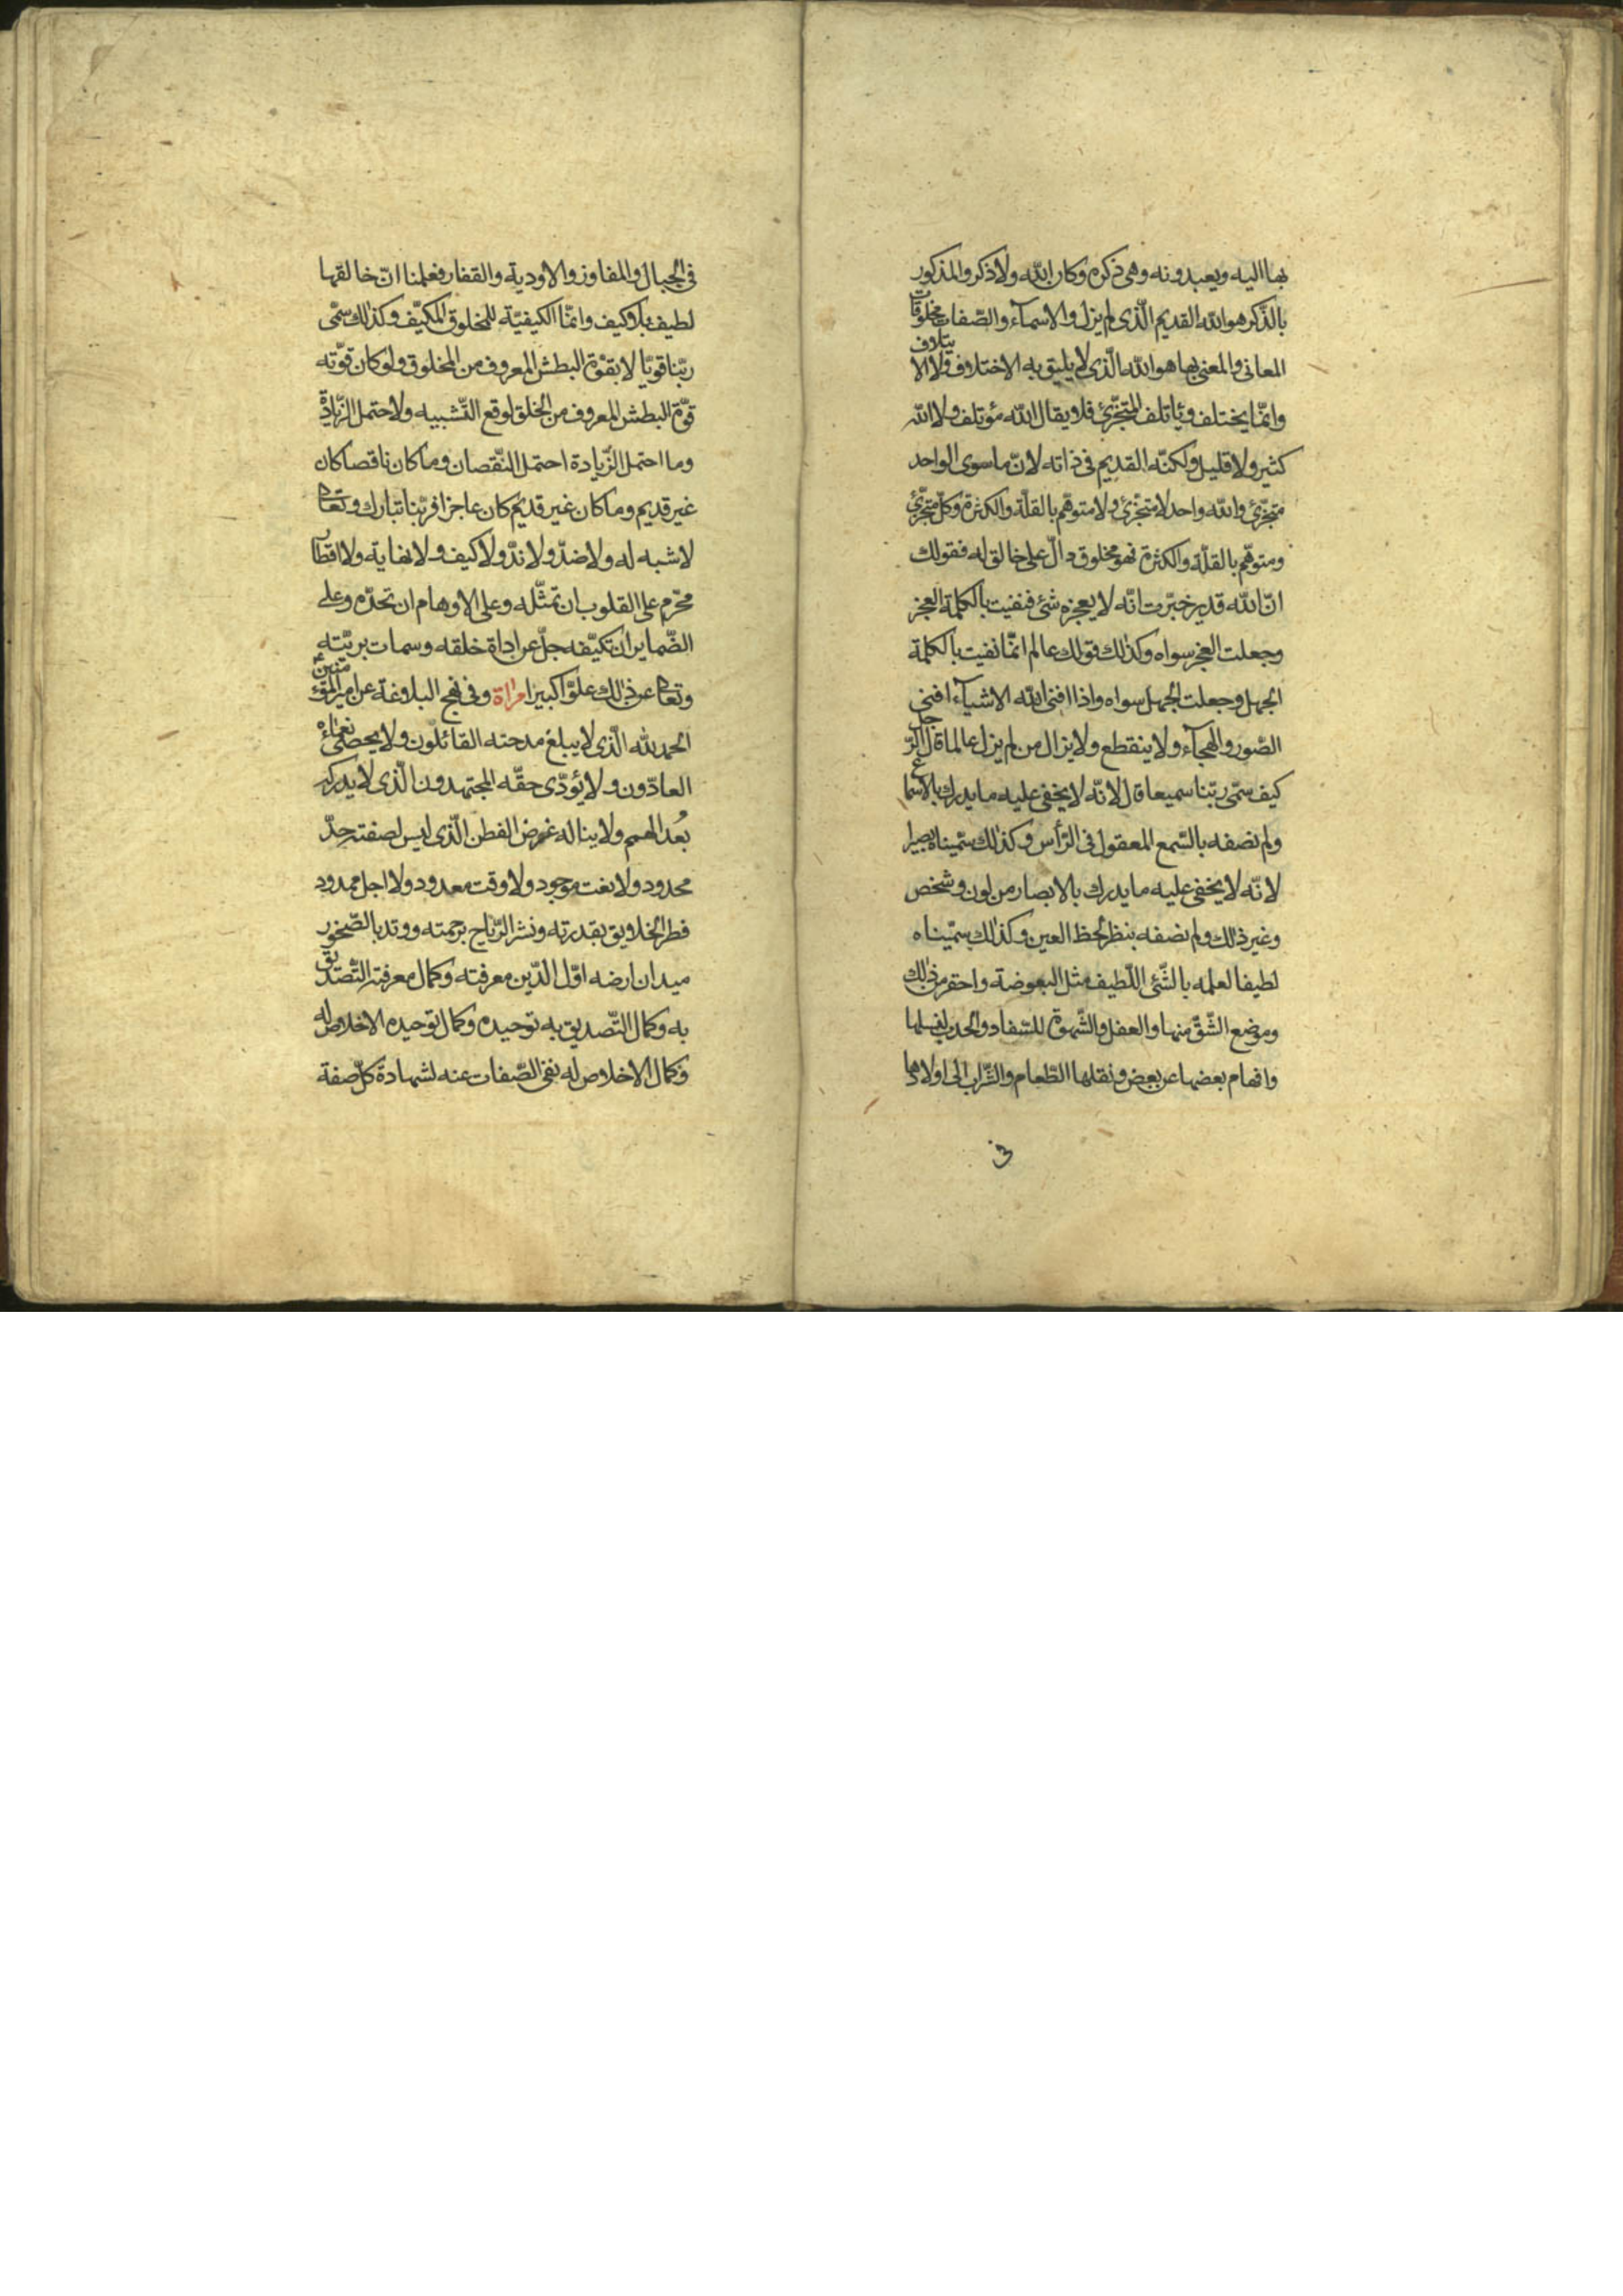 بها اليه ويعبدونه وهى ذكره وكان الله ولا ذكر والمذكور
بالذّكر هو الله القديم الّذى لم يزل والاسمآء والصّفات مخلوقات
المعانى والمعنى بها هو الله الّذى لا يليق به الاختلاف ولا الايتلاف
وانّما يختلف ويأتلف المتجزّئ فلا يقال الله مؤتلف ولا الله
كثير ولا قليل ولكنّه القديم فى ذاته لانّ ما سوى الواحد
متجزّئ والله واحد لا متجزّئ ولا متوهّم بالقلّة والكثرة وكلّ متجزّئ
ومتوهّم بالقلّة والكثرة فهو مخلوق دالّ على خالق له فقولك
انّ الله قدير خبّرت انّه لا يعجزه شئ فنفيت بالكلمة العجز
وجعلت العجز سواه وكذلك قولك عالم انّما نفيت بالكلمة
الجهل وجعلت الجهل سواه واذا افنى الله الاشيآء افنى
الصّور والهجآء ولا ينقطع ولا يزال من لم يزل عالما قال الرّجل
كيف سمّى ربّنا سميعا قال لانّه لا يخفى عليه ما يدرك بالاسماع
ولم نصفه بالسّمع المعقول فى الرّأس وكذلك سمّيناه بصيرا
لانّه لا يخفى عليه ما يدرك بالابصار من لون وشخص
وغير ذلك ولم نصفه بنظر لحظ العين وكذلك سمّيناه
لطيفا لعلمه بالشّئ اللّطيف مثل البعوضة واحقر من ذلك
وموضع الشّقّ منها والعقل والشّهوة للسّفاد والحدب لنسلها
وافهام بعضها عن بعض ونقلها الطّعام والشّراب الى اولادها
فى
فى الجبال والمفاوز والاودية والقفار فعلمنا انّ خالقها
لطيف بلا كيف وانّما الكيفيّة للمخلوق المكيّف وكذلك سمّى
ربّنا قويّا لا بقوّة البطش المعروف من المخلوق ولو كان قوّته
قوّة البطش المعروف من الخلق لوقع التّشبيه ولاحتمل الزّيادة
وما احتمل الزّيادة احتمل النّقصان وما كان ناقصا كان
غير قديم وما كان غير قديم كان عاجزا فربّنا تبارك وتعالى
لا شبه له ولا ضدّ ولا ندّ ولا كيف ولا نهاية ولا اقطار
محرّم على القلوب ان تمثّله وعلى الاوهام ان تحدّه وعلى
الضّماير ان تكيّفه جلّ عن اداة خلقه وسمات بريّته
وتعالى عن ذلك علوّا كبيرا مراة وفى نهج البلاغة عن امير المؤمنين ع
الحمد لله الّذى لا يبلغ مدحته القائلون ولا يحصى نعماءه
العادّون ولا يؤدّى حقّه المجتهدون الّذى لا يدركه
بُعد الهمم ولا يناله غوض الفطن الّذى ليس لصفته حدّ
محدود ولا نعت موجود ولا وقت معدود ولا اجل ممدود
فطر الخلايق بقدرته ونشر الرّياح برحمته ووتد بالصّخور
ميدان ارضه اوّل الدّين معرفته وكمال معرفته التّصديق
به وكمال التّصديق به توحيده وكمال توحيده الاخلاص له
وكمال الاخلاص له نفى الصّفات عنه لشهادة كلّ صفة